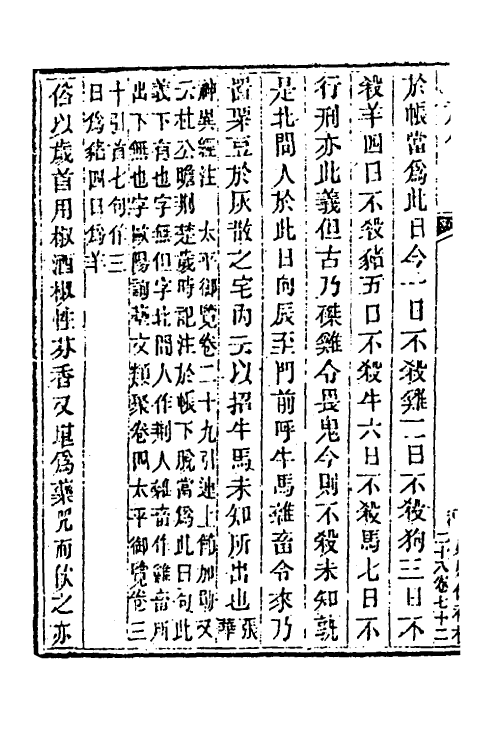 於帳當為此日今一日不殺雞二日不殺狗三日不
殺羊四日不殺豬五日不殺牛六日不殺馬七日不
行刑亦此義但古乃磔雞令畏鬼今則不殺未知孰
是北間人於此日向辰至門前呼牛馬雜畜令來乃
置粟豆於灰散之宅內云以招牛馬未知所出也張華
神異經注 太平御覽卷二十九引連上節加勒又
云杜公瞻荆楚歲時記注於帳下脫當為此日句此
義下有也字無但字北間人作荆人雜畜作雜畜所
出下無也字歐陽詢藝文類聚卷四太平御覽卷三
十引首七句作三
日為豬四日為羊
俗以歲首用椒酒椒性芬香又堪為藥咒而飲之亦